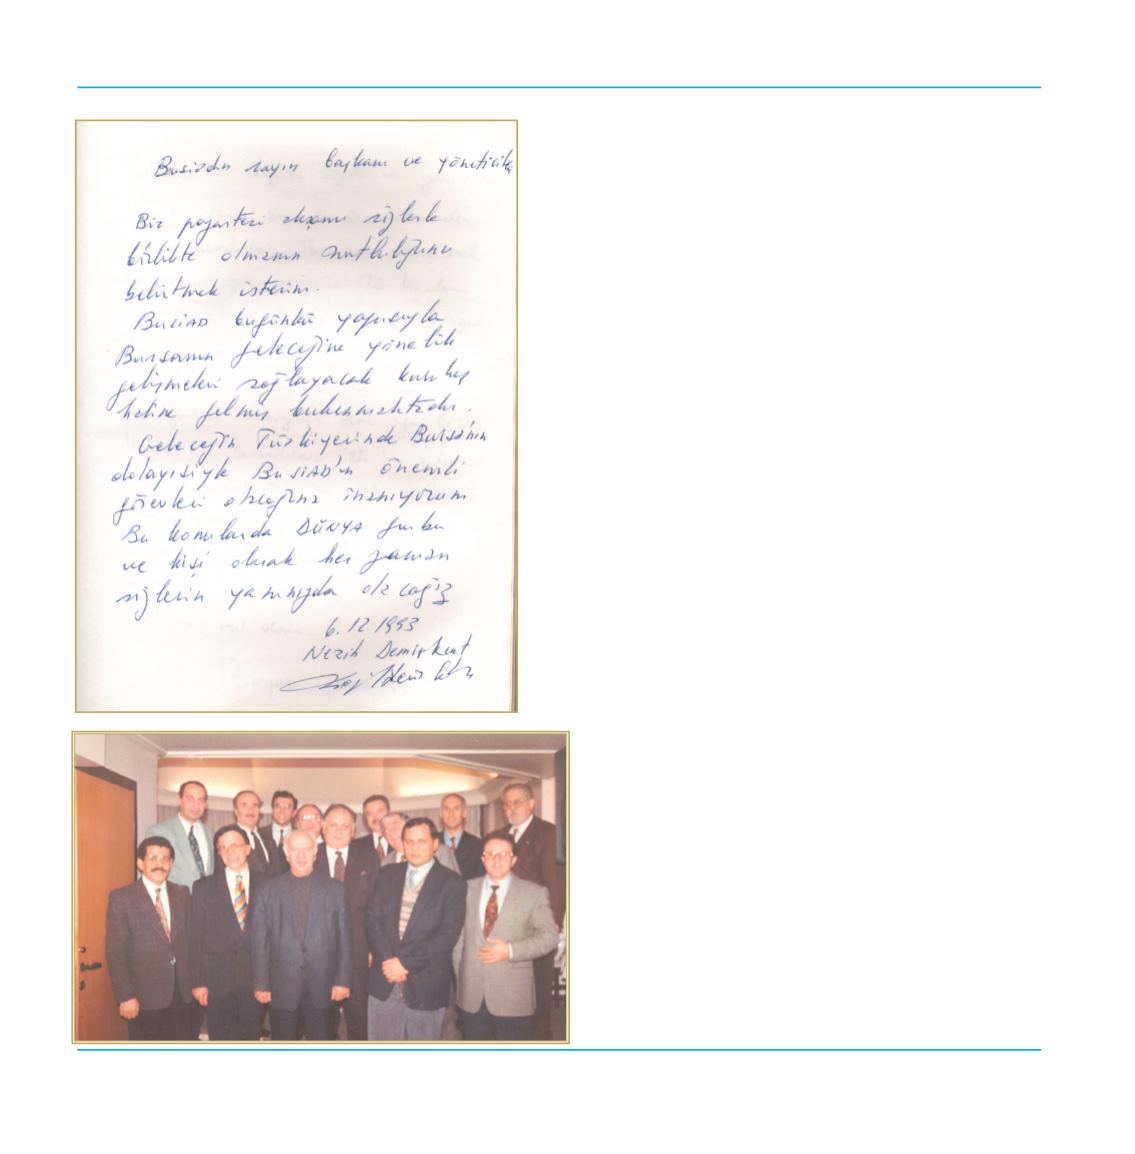 Busiadın sayın başkanı ve yöneticileri
Bir pazartesi akşamı sizlerle
birlikte olmanın mutluluğunu
belirtmek isterim.
BUSİAD bugünkü yapısıyla
Bursanın geleceğine yönelik
gelişmeleri sağlayacak kuruluş
haline gelmiş bulunmaktadır.
Geleceğin Türkiyesinde Bursa'nın
dolayısiyle BUSİAD'ın önemli
görevleri olacağına inanıyorum
Bu konularda DÜNYA grubu
ve kişi olarak her zaman
sizlerin yanınızda olacağız
6.12.1993
Nezih Demirkent